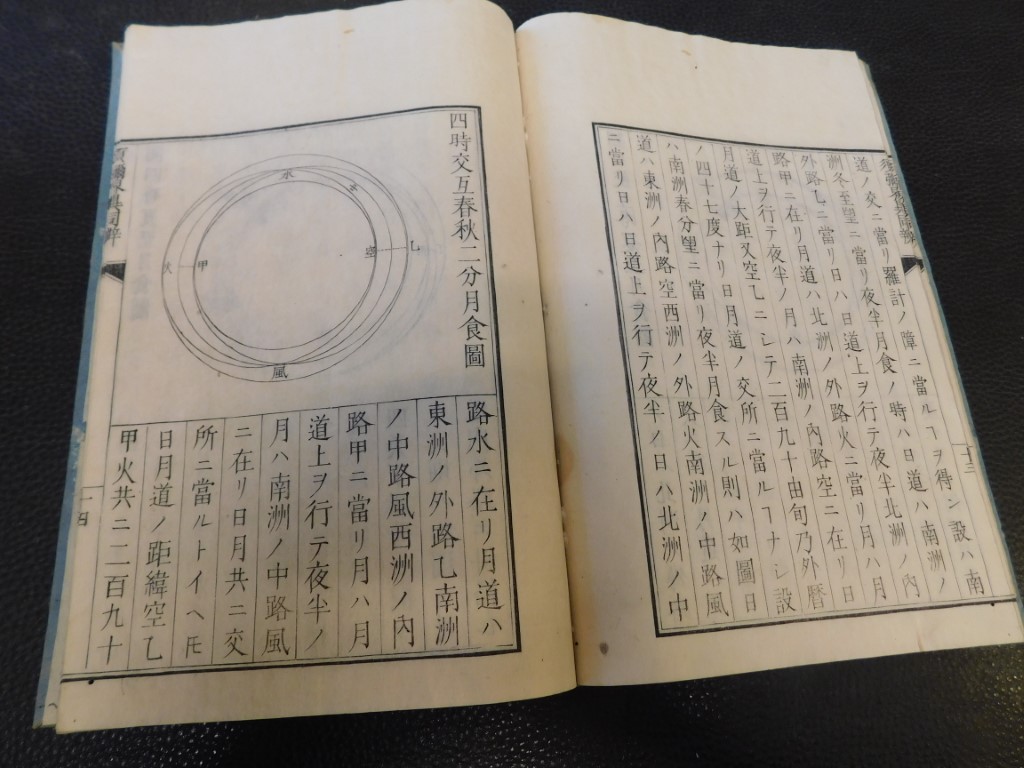 道ノ交ニ當リ羅計ノ障ニ當ルヿヲ得ン設ハ南
洲冬至望ニ當リ夜半月食ノ時ハ日道ハ南洲ノ
外路乙ニ當リ日ハ日道上ヲ行テ夜半北洲ノ內
路甲ニ在リ月道ハ北洲ノ外路火ニ當リ月ハ月
道上ヲ行テ夜半ノ月ハ南洲ノ內路空ニ在リ日
月道ノ大距又空乙ニシテ二百九十由旬乃外暦
ノ四十七度ナリ日月道ノ交所ニ當ルヿナシ設
ハ南洲春分望ニ當リ夜半月食スル則ハ如圖日
道ハ東洲ノ內路空西洲ノ外路火南洲ノ中路風
ニ當リ日ハ日道上ヲ行テ夜半ノ日ハ北洲ノ中
十三
四時交互春秋二分月食圖
水
空
乙
甲
火
風
路水ニ在リ月道ハ
東洲ノ外路乙南洲
ノ中路風西洲ノ內
路甲ニ當リ月ハ月
道上ヲ行テ夜半ノ
月ハ南洲ノ中路風
ニ在リ日月共ニ交
所ニ當ルトイヘ𪜈
日月道ノ距緯空乙
甲火共ニ二百九十
十四